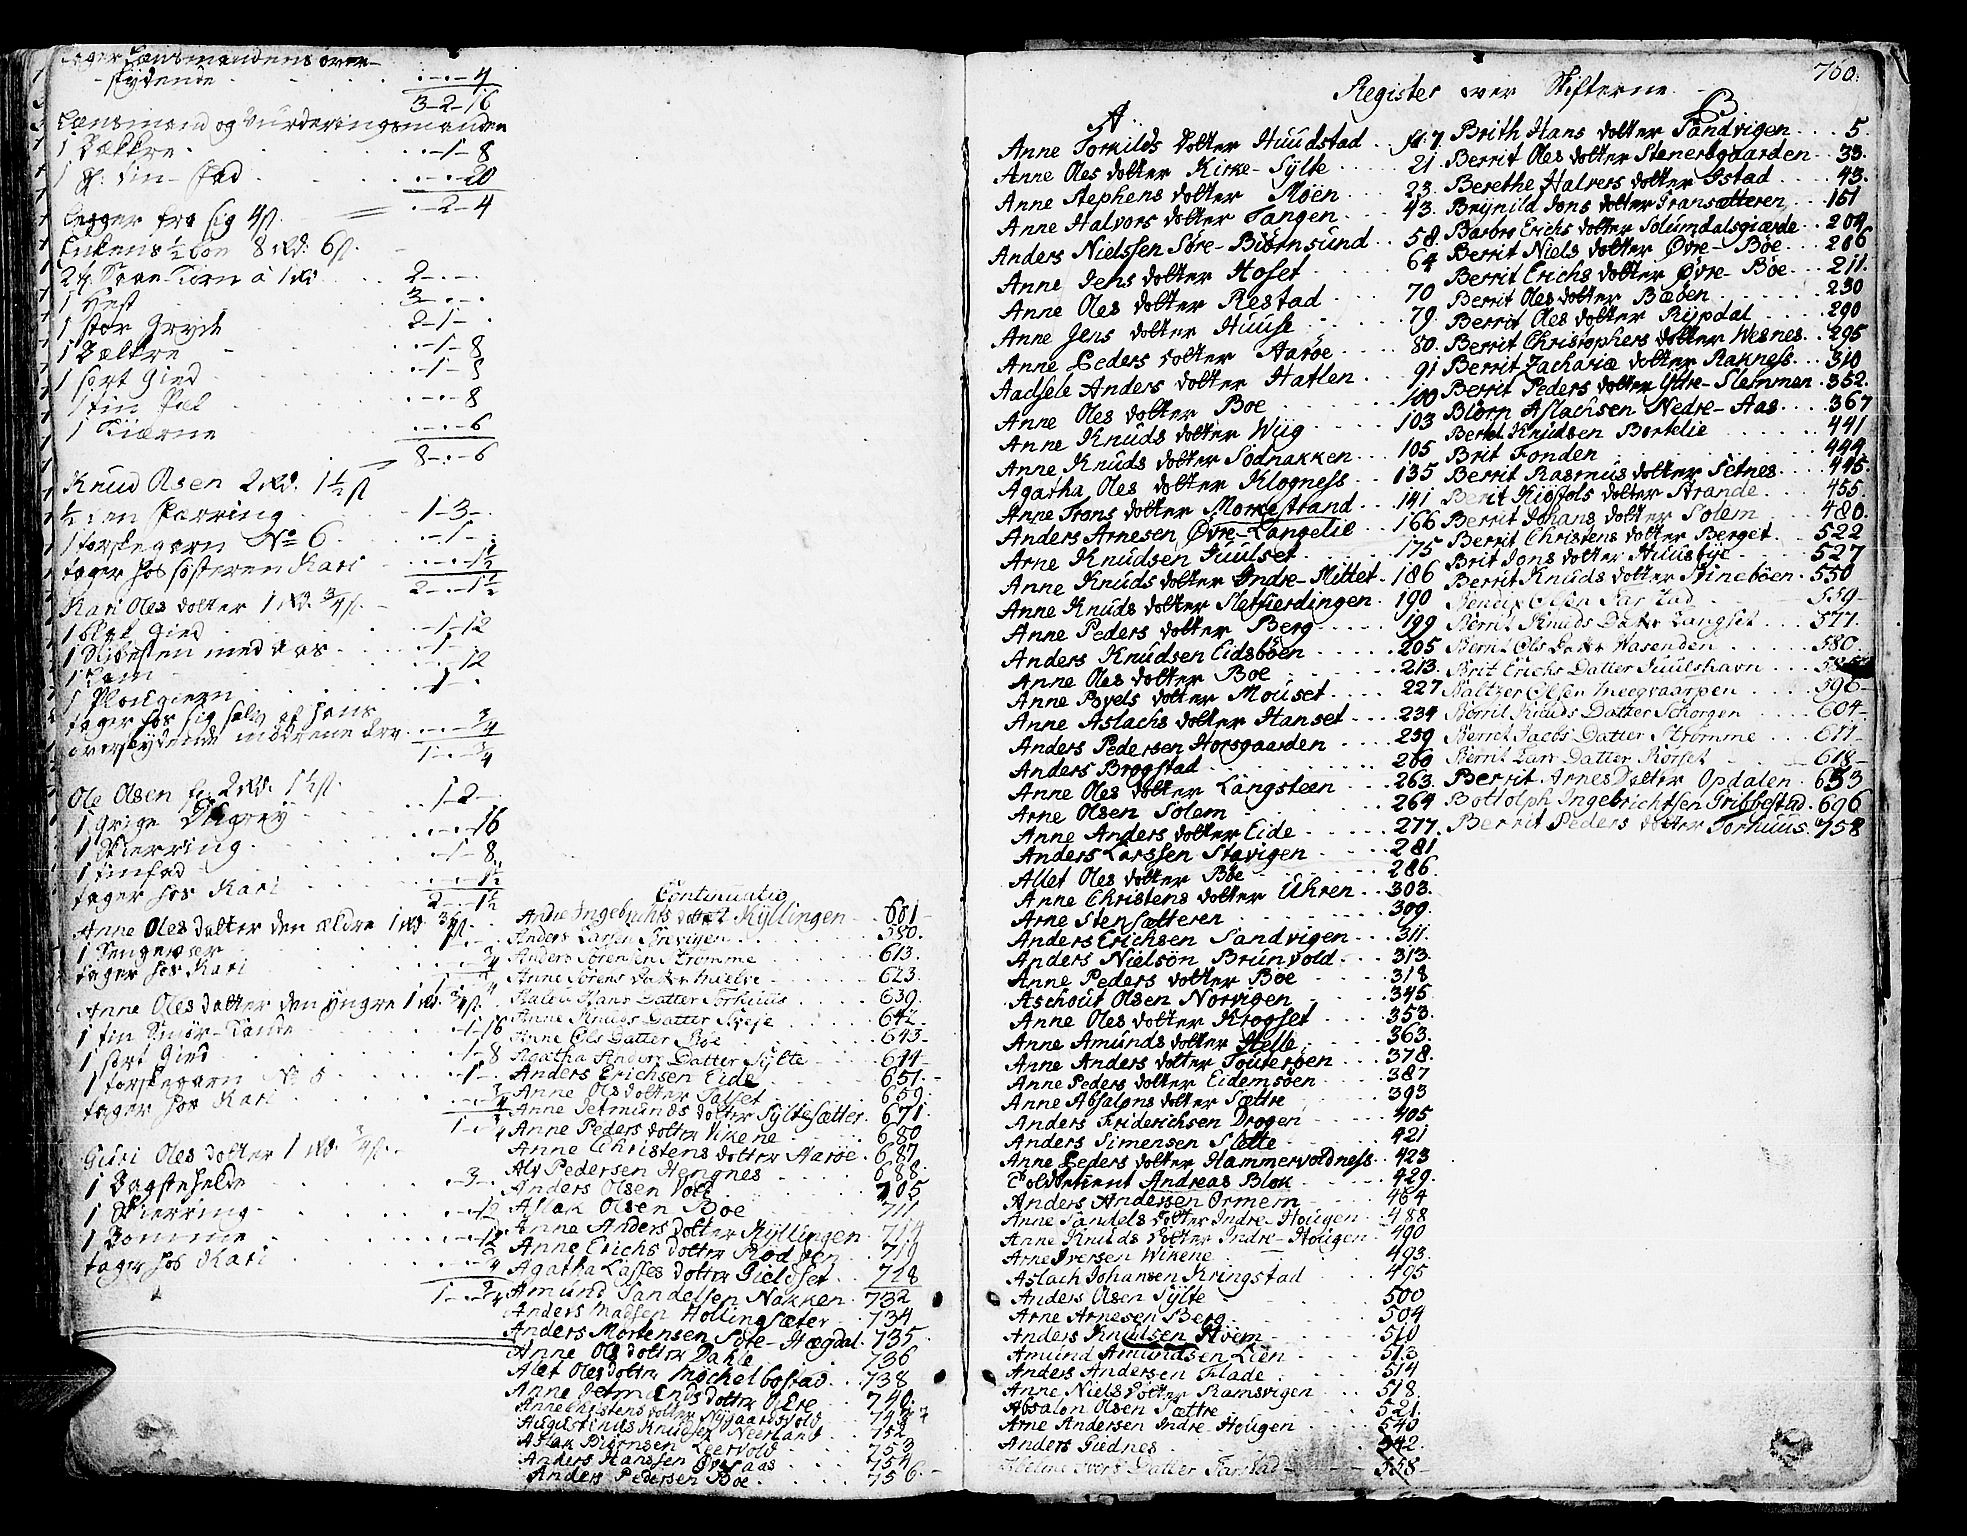 tager Lænsmandens over-
skydende . . . . -.-4
3-2-16
Lænsmand og Vurderingsmanden
1 Bæltre . . . -1-8
1 tin-fad . . . -.-20
-2-4
legger fra sig 4 s
Enkens ½ boe 8 rd: 6 s.
à 1 rd 2-.-
1 Hest 3-.-.
1 stor gryde 2-1-.
1 Bæltre -1-8
1 sort gied -1-8
1 tin -.-8
1 Kierne -.-6
8-.-6
Knud Olsen 2 rd. 1½ s
½ den 1-3-.
1 torskegarn No 6 . -1-.
tager hos søsteren Kari -.-1½
2-.-1½
Kari Oles dotter 1 rd. ¾ s.
1 gied -1-12
1 Slibesten med -1-
1 -.-12
1 Plougiern 1-.
tager hos sig selv af
overskydende -.-¾
1-.-¾
Ole Olsen 2 rd. 1½ s.
1 . . 1-2-.
1 Skierring . -.-16
1 tinfad -1-8
tager hos Kari -.-1½
2-.-1½
Anne Oles dotter den ældre 1 rd ¾ s.
1 Sengevær 1-.
tager hos Kari -.-¾
Anne Oles dotter den yngre 1 rd. ¾ s.
1 tin Smør-Kande -1-16
1 sort gied -1-8
1 torskegarn No 8 -1-.
tager hos Kari -.-¾
1-.-¾
Guri Oles dotter 1 rd. ¾ s.
1 Bagstehelde . -3-.
1 Skierring -.-12
1 Bomme -.-12
tager hos Kari -.-¾
1-.-¾
Continuatio
Andr Ingebrichts dotter Kyllingen 681
Anders Larsen 580.
Anders Sørensen Strømme 613.
Anne Sørens Datter 623.
Hans Datter Torhuus 639.
Anne Knuds Datter 642.
Anne Ols Datter Boe 643-
Agatha Anders Datter Sylte 644-
Anders Erichsen Eide 651.
Anne Ols dotter 659.
Anne Jetmunds dotter Sylte Sætter. 671.
Anne Peders dotter Vikene 680
Anne Christens dotter Aarøe. 687
Alv Pedersen Hengnes 688.
Anders Olsen Vold 705
Aslak Olsen Boe 711
Anne Anders dotter Kyllingen 714
Anne Erichs dotter Rød 719
Agatha Lasses dotter Gieldset 728
Amund Sandelsen Nakken. 732
Anders Madsen Hollingsæter. 734
Anders Mortensen Søre-Hægdal. 735.
Anne Ols dotter Dahle 736
Alet Oles dotter Mechelbostad 738
Anne Jetmunds dotter 740.
Anne Christens dotter Nygaardsvold
Augustinus Knudsen Neerland. 752
Aslak Biørnsen Leervold 753
Anders Hanssen Øvr Aas 754
Anders Pedersen Boe 756.
760.
Register over Skifterne.
A
Anne Torkilds dotter Huudstad fol: 7.
Anne Oles dotter Kirke-Sylte 21
Anne Stephens dotter Moen 23.
Anne Halvors dotter Tangen 43.
Anders Nielssen Søre-Biørnsund 58.
Anne Jens dotter Hoset 64
Anne Oles dotter Restad 70
Anne Jens dotter Huuse 79.
Anne Peders dotter Aarøe 80.
Aadsele Anders dotter Hatlen 91
Anne Oles dotter Boe 100
Anne Knuds dotter Wiig 103
Anne Knuds dotter Sødnakken 105
Agatha Oles dotter Klogness 135
Anne Frans dotter Morkestrand 141
Anders Arnesen Øvre-Langelie 166
Arne Knudsen Juulset 175
Anne Knuds dotter Indre-Mittet. 186
Anne Knuds dotter Sletfierdingen 190
Anne Peders dotter Berg 199
Anders Knudsen Eidsbøen 205
Anne Oles dotter Boe 213.
Anne Byels dotter Mouset 227
Anne Aslachs dotter Hanset 234
Anders Pedersen Horsgaarden 259
Anders Brogstad 260
Anne Oles dotter Langsteen 263.
Arne Olsen Solem 264
Anne Anders dotter Eide 277.
Anders Larssen Stavigen 281
Allet Oles dotter Boe 286.
Anne Christens dotter Uhren 303.
Arne Stensætteren 309.
Anders Erichsen Sandvigen 311.
Anders Nielsøn Brunvold 313.
Anne Peders dotter Boe 318
Aschout Olsen Norvigen 345
Anne Oles dotter Krogset 353.
Anne Amunds dotter Helle 363.
Anne Anders dotter Touterøen 378.
Anne Peders dotter Eidemsøen 387
Anne Absalons dotter Sættre 393
Anders Friderichsen Drogen 405
Anders Simensen Slette 421
Anne Peders dotter Hammervoldness. 423
Andreas Blok 429.
Anders Andersen Ormem 464
Anne Sandels dotter Indre-Hougen 488
Anne Knuds dotter Indre-Hougen 490
Arne Iversen Wikene 493.
Aslach Johansen Kringstad 495
Anders Olsen Sylte 500
Arne Arnesen Berg 504
Anders Knudsen Hoem 510
Amund Amundsen Lien 513
Anders Andersen Flade 514
Anne Niels dotter Ramsvigen 518.
Absalon Olsen Sættre 521.
Arne Andersen Indre-Hougen 540
Anders Giednes 542.
Ivers Datter Farstad 558-
B
Brith Hans dotter Sandvigen 5.
Berrit Oles dotter Stenersgaarden 33.
Berethe Halvers dotter Istad 43.
Brynild Jons dotter Fransætteren 151
Barbro Erichs dotter Solumdalsgiærde 204
Berrit Niels dotter Øvre-Boe 206
Berrit Erichs dotter Øvre-Boe 211.
Berrit Oles dotter Bæøen 230
Berrit Oles dotter Rypdal 290
Berrit Christophers dotter Wesnes 295
Berrit Zachariæ dotter Raknes 310
Berrit Peders dotter Ydre-Slemmen 352.
Biørn Aslachsen Nedre-Aas 367
Bertel Knudsen Bortelie 441
Brit Fonden 444.
Berrit Rasmus dotter Setnes 445.
Berit Kiøstols dotter Strande 455.
Berrit Johans dotter Solem 480.
Berrit Christens dotter Berget 522
Brit Jons dotter Huusbye 527
Berrit Knuds dotter Stinebøen 550
Bendix Olsen Farstad 559-
Berrit Knuds Datter Langset 577.
Berrit Ols Datter Hasenden 580.
Brit Erichs Datter Juulshavn
Baltzer Olsen Meegaarpen 596-
Berrit Knuds Datter Schorgen 604-
Berret Jacobs Datter Strømme 611-
Berrit Lars Datter Rørset 618-
Berrit Arnes Datter Opdalen 653
Bottolph Ingebrichtsen Gribbestad 696
Berrit Peders dotter Torhuus. 758